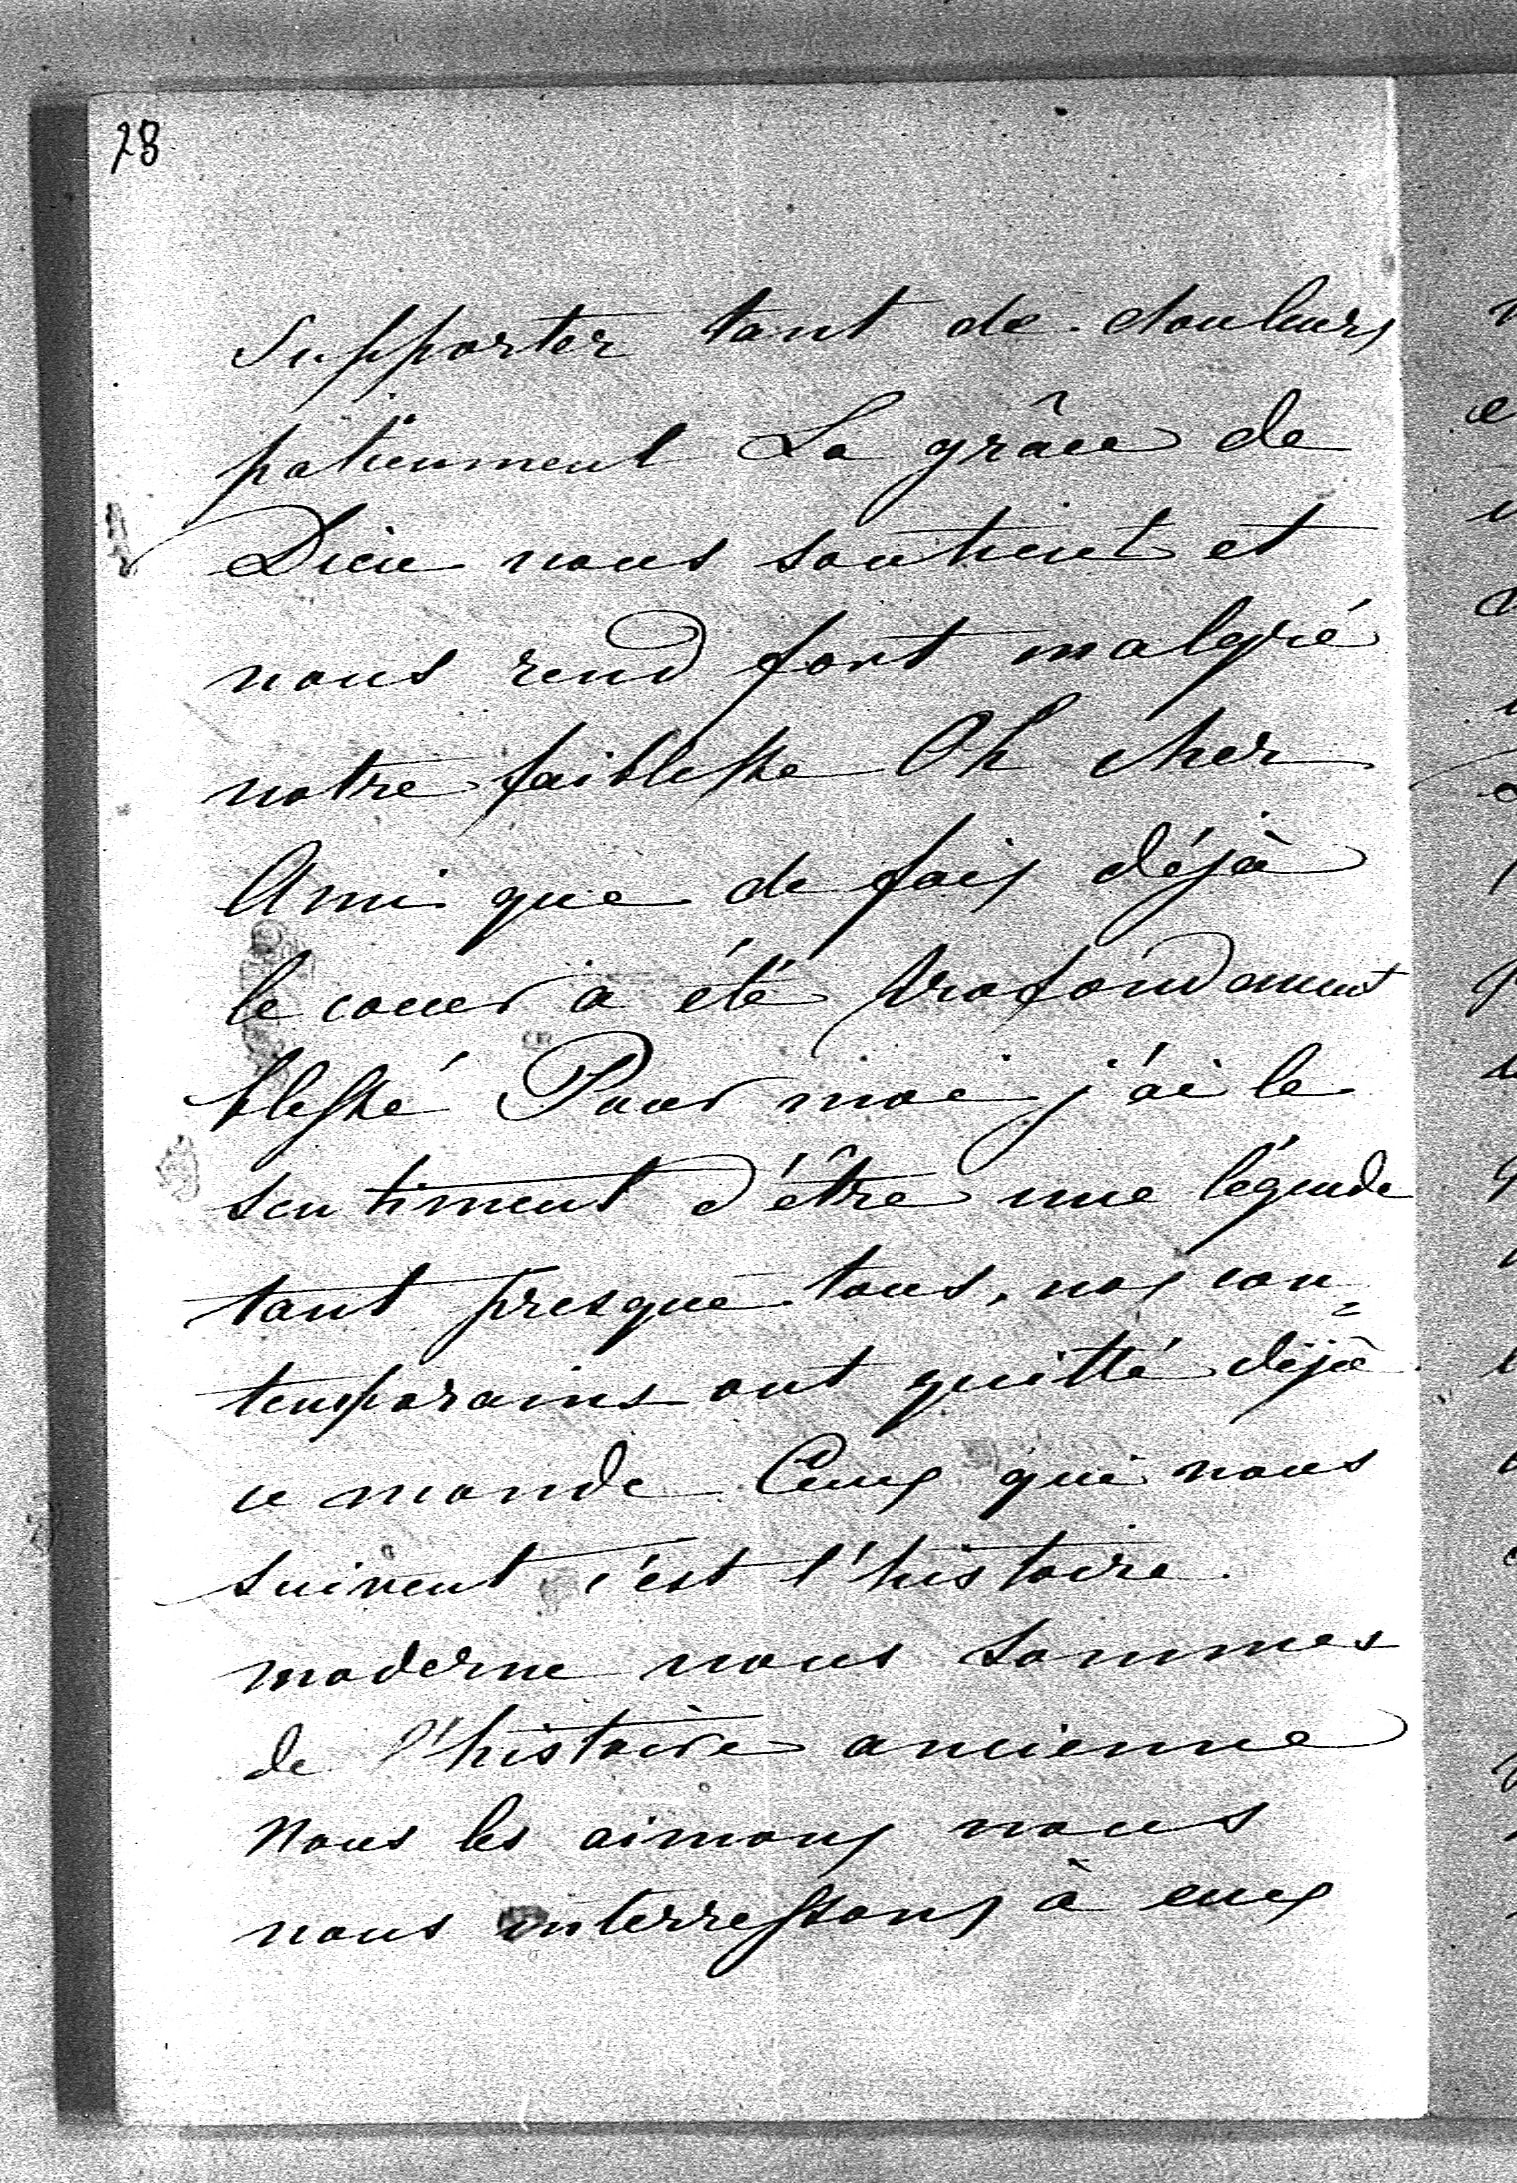 28
supporter tant de douleurs
patiemment La grâce de
Dieu nous soutient et
nous rend fort malgré
notre faiblesse Oh cher
Ami que de fois déjà
le coeur a été profondement
blessé Pour moi j'ai le
sentiment d'être une légende
tant presque tous, nos con=
temporains ont quitté déjà
ce monde Ceux qui nous
suivent c'est l'histoire
moderne nous sommes
de l'histoire ancienne
Nous les aimons nous
nous interressons à eux